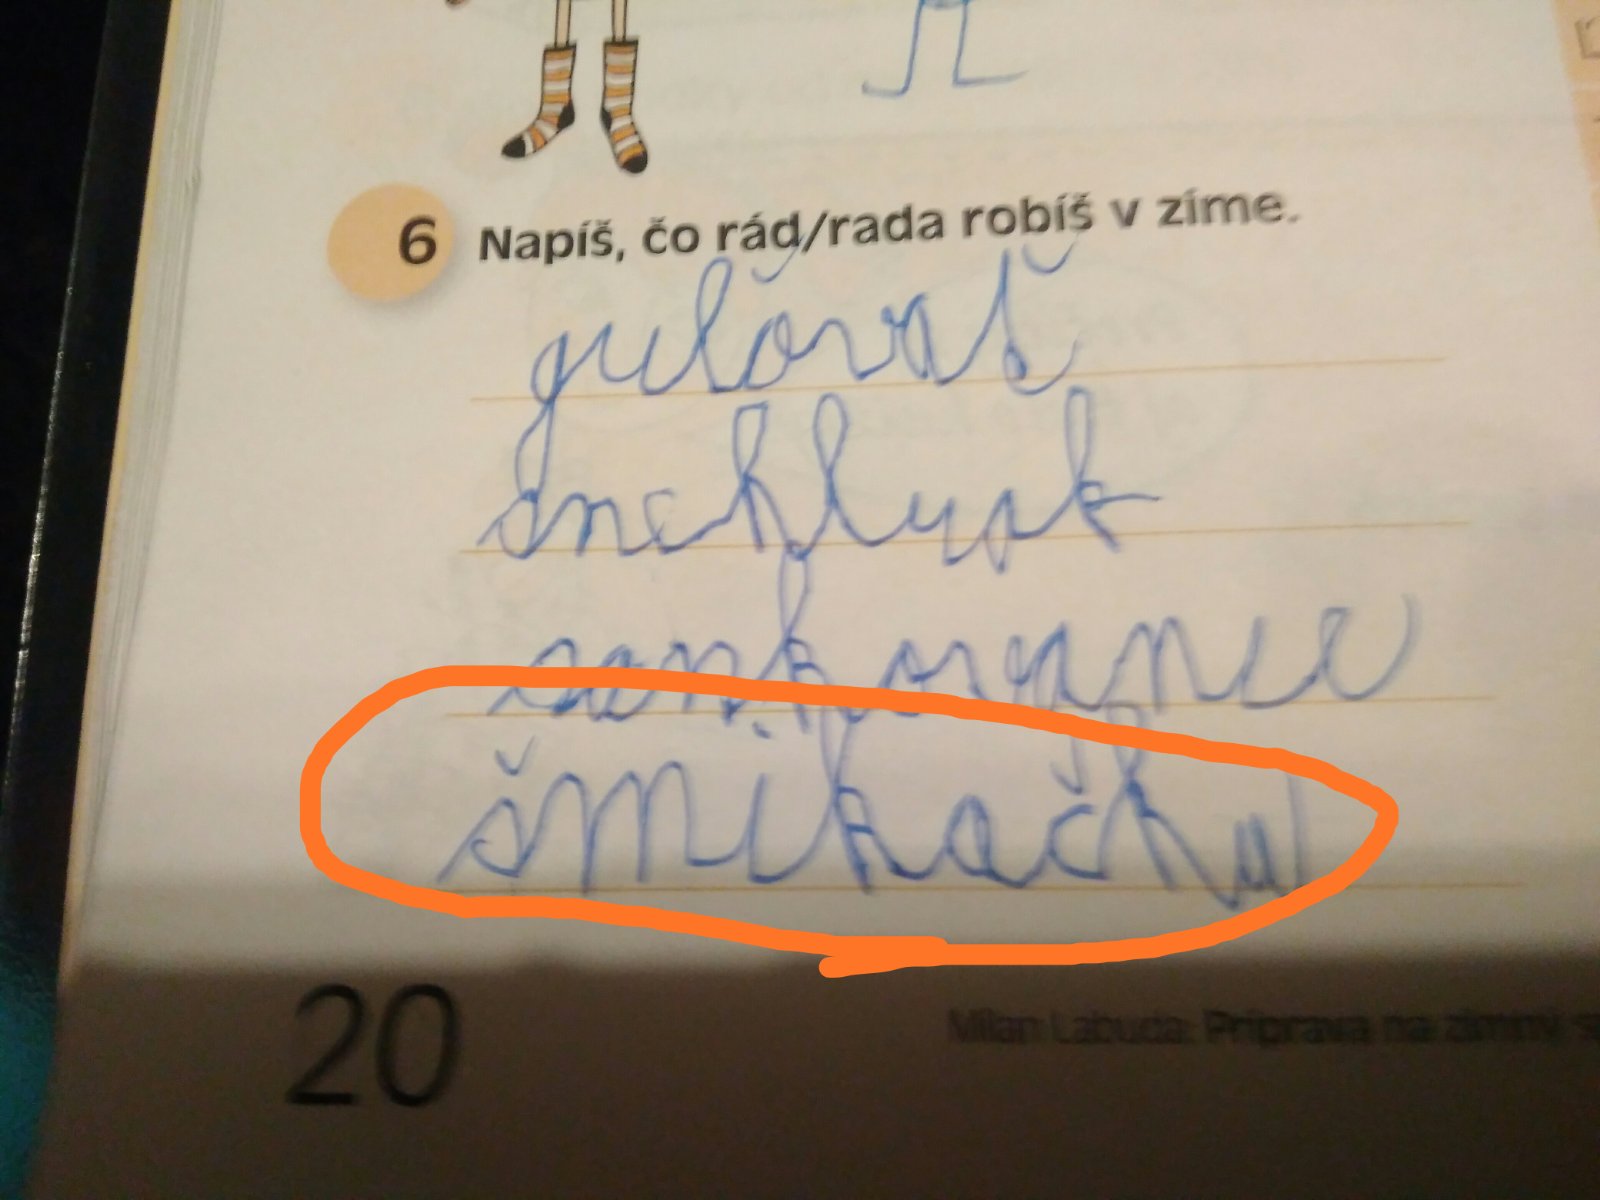 6 Napíš, čo rád/rada robíš v zíme.
gulovať
snehlyak
sonkovanie
šmikačku
20
Milan Labuda: Príprava na zimný s